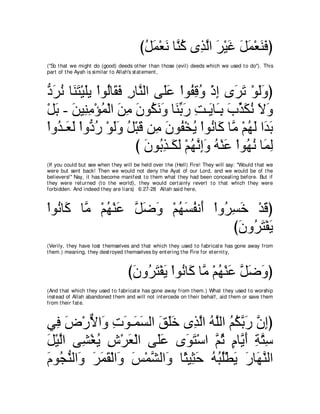 (فَنَعْمَلَ غَيْرَ الَّذِى كُنَّا نَعْمَلُ)
("So that we might do (good) deeds other than those (evil) deeds which we used to do"). This
part of the Ayah is similar to Allah's statement,
(وَلَوْ تَرَى إِذْ وُقِفُواْ عَلَى النَّارِ فَقَالُواْ يلَيْتَنَا نُرَدُّ
وَلاَ نُكَذِّبَ بِـَايَـتِ رَبِّنَا وَنَكُونَ مِنَ الْمُؤْمِنِينَ - بَلْ
بَدَا لَهُمْ مَّا كَانُواْ يُخْفُونَ مِن قَبْلُ وَلَوْ رُدُّواْ لَعَـدُواْ
لِمَا نُهُواْ عَنْهُ وَإِنَّهُمْ لَكَـذِبُونَ )
(If you could but see when they will be held over the (Hell) Fire! They will say: "Would that we
were but sent back! Then we would not deny the Ayat of our Lord, and we would be of the
believers!" Nay, it has become manifest to them what they had been concealing before. But if
they were returned (to the world), they would certainly revert to that which they were
forbidden. And indeed they are liars) 6:27-28 Allah said here,
(قَدْ خَسِرُواْ أَنفُسَهُمْ وَضَلَّ عَنْهُمْ مَّا كَانُواْ
يَفْتَرُونَ)
(Verily, they have lost themselves and that which they used to fabricate has gone away from
them.) meaning, they destroyed themselves by entering the Fire for eternity,
(وَضَلَّ عَنْهُمْ مَّا كَانُواْ يَفْتَرُونَ)
(And that which they used to fabricate has gone away from them.) What they used to worship
instead of Allah abandoned them and will not intercede on their behalf, aid them or save them
from their fate.
(إِنَّ رَبَّكُمُ اللَّهُ الَّذِى خَلَقَ السَمَـوَتِ وَالأَرْضَ فِي
سِتَّةِ أَيَّامٍ ثُمَّ اسْتَوَى عَلَى الْعَرْشِ يُغْشِى الَّيْلَ
النَّهَارَ يَطْلُبُهُ حَثِيثًا وَالشَّمْسَ وَالْقَمَرَ وَالنُّجُومَ